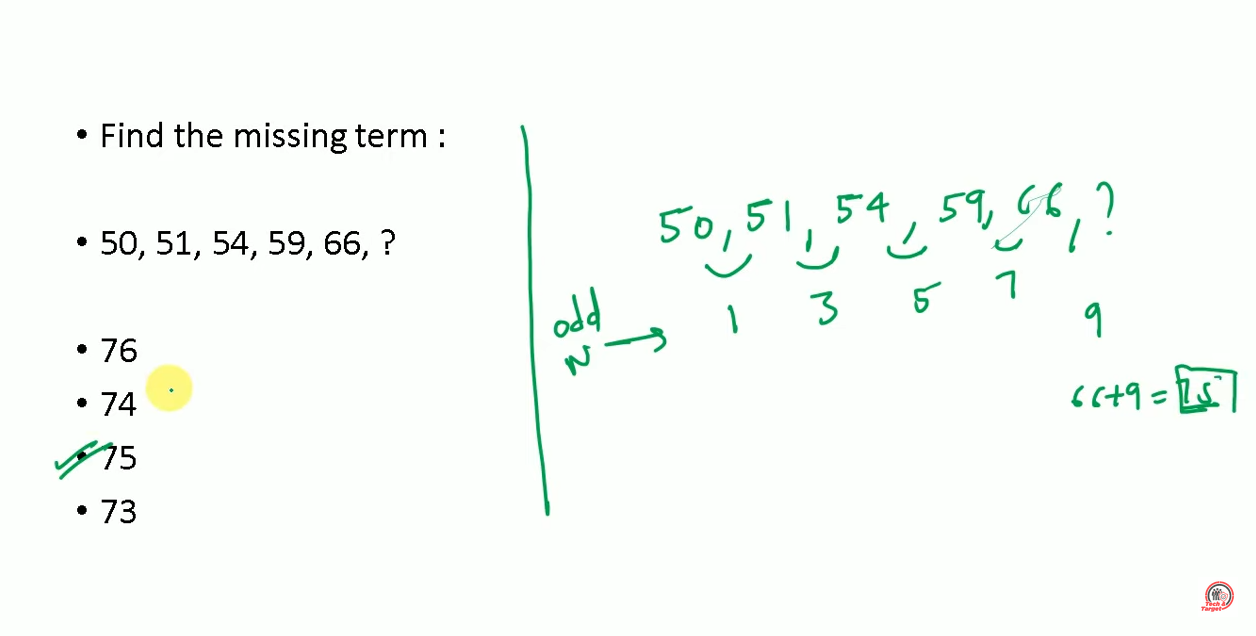 • Find the missing term :
• 50, 51, 54, 59, 66, ?
• 76
• 74
• 75
• 73
50, 51, 54, 59, 66, ?
1 3 5 7 9
odd
N →
66+9 = 75
Tech &
Target